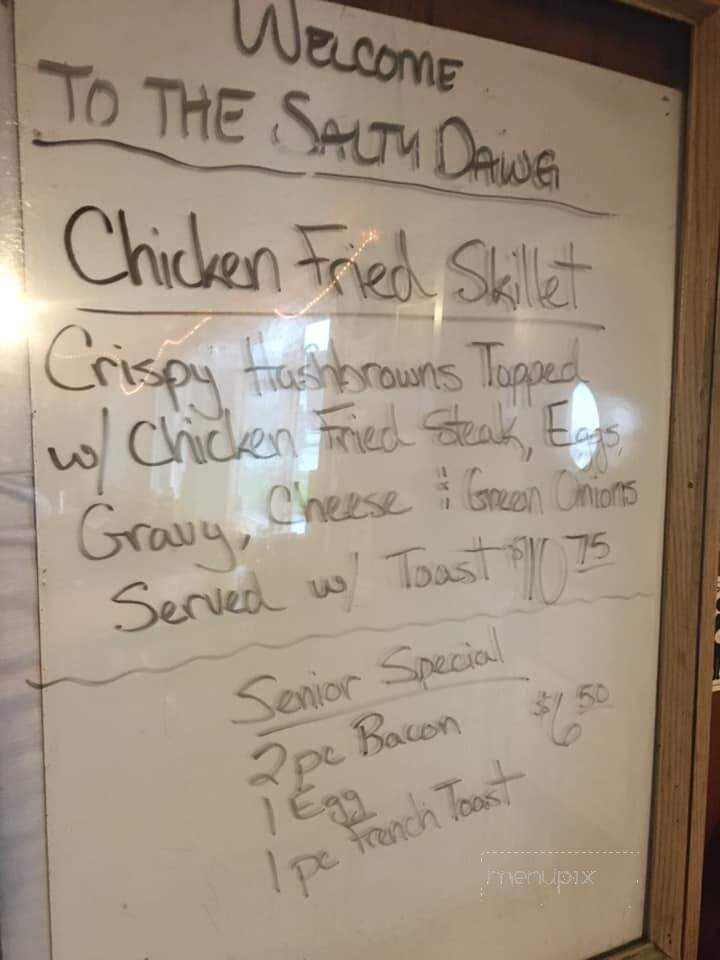 WELCOME
TO THE SALTY DAWG
Chicken Fried Skillet
Crispy Hashbrowns Topped
w/ Chicken Fried Steak, Eggs,
Gravy, Cheese & Green Onions
Served w/ Toast $10.75
Senior Special
2 pc Bacon $6.50
1 Egg
1 pc French Toast
menupix